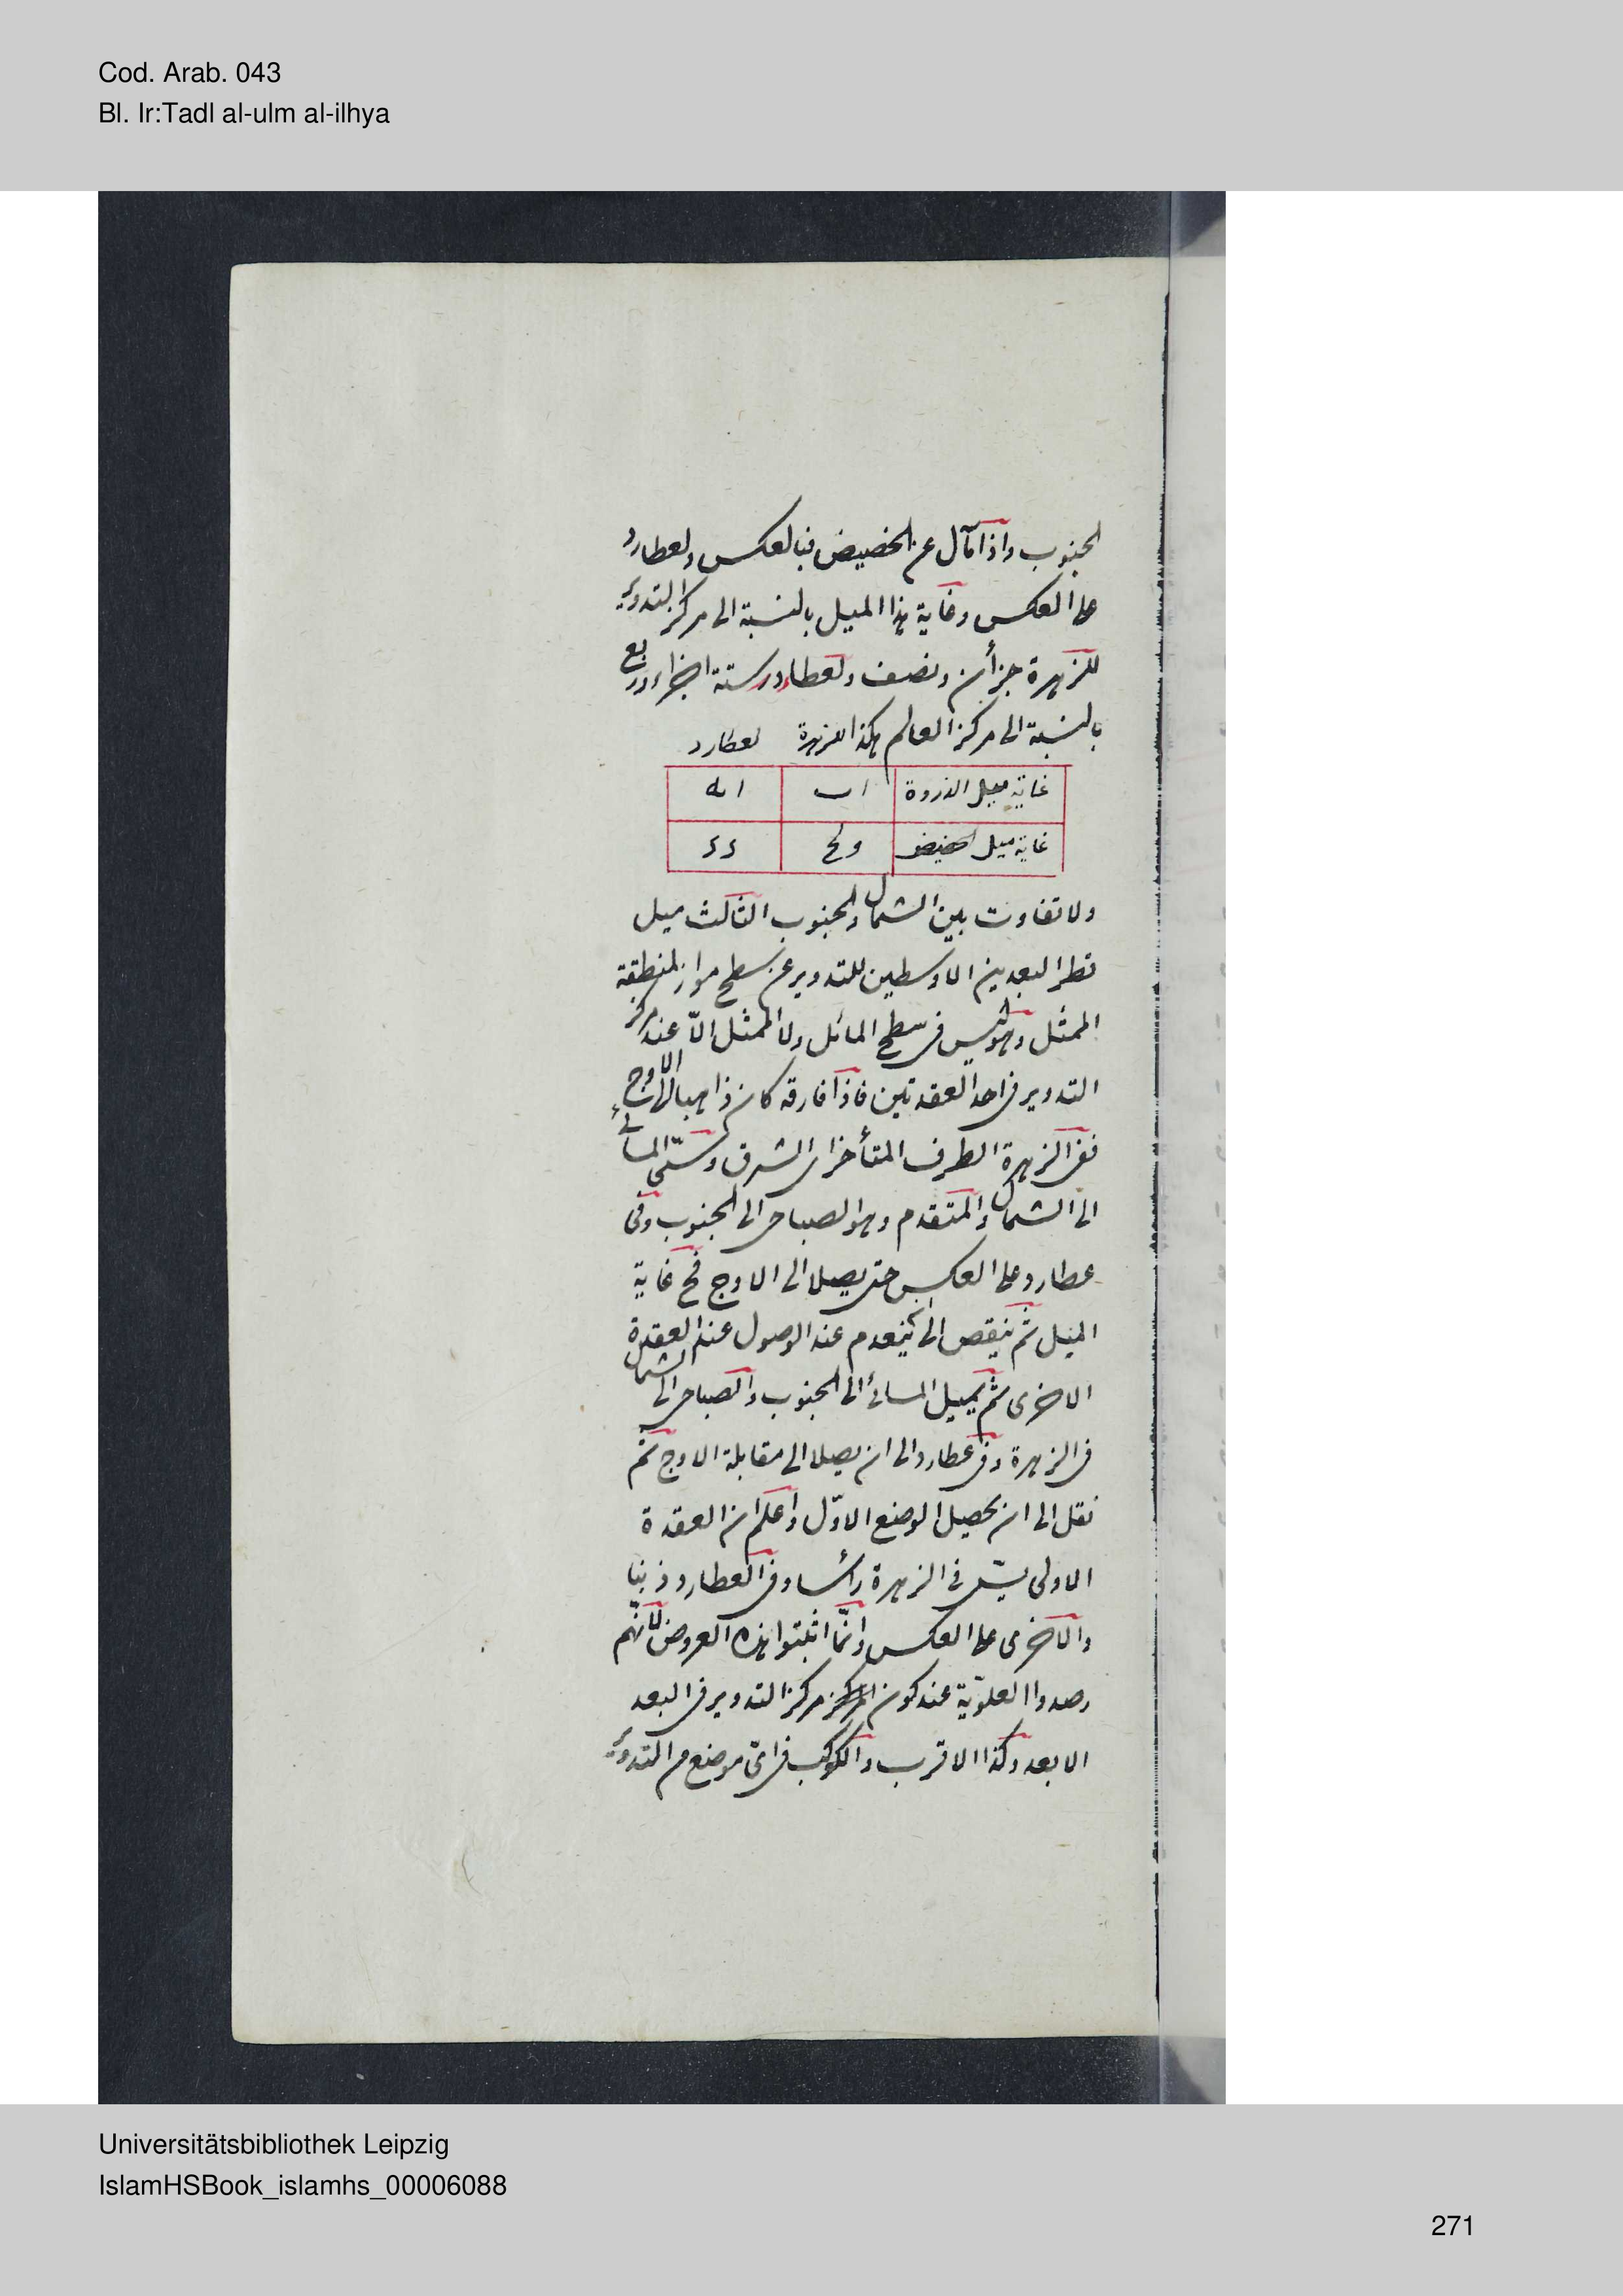 Cod. Arab. 043
Bl. Ir:Tadl al-ulm al-ilhya
الجنوب واذا مال عن الحضيض فبالعكس ولعطارد
على العكس وغاية هذا الميل بالنسبة الى مركز التدوير
للزهرة جزأن ونصف ولعطارد ستة اجزاء وربع
بالنسبة الى مركز العالم هكذا للزهرة لعطارد
غاية ميل الذروة ا ب ا مه
غاية ميل الحضيض و كح د د
ولا تفاوت بين الشمال والجنوب الثالث ميل
قطر البعدين الاوسطين للتدوير عن سطح مواز لمنطقة
الممثل وهو ليس فى سطح المائل ولا الممثل الّا عند مركز
التدوير فى احد العقدتين فاذا فارقه كان ذاهبا الى الاوج
ففى الزهرة الطرف المتأخر اى الشرقى ويسمّى المسائى
الى الشمال والمتقدم وهو الصباحى الى الجنوب وفى
عطارد على العكس حتى يصلا الى الاوج فح غاية
الميل ثم ينقص الى ان ينعدم عند الوصول عند العقدة
الاخرى ثم يميل المسائى الى الجنوب والصباحى الى الشمال
فى الزهرة وفى عطارد الى ان يصلا الى مقابلة الاوج ثم
نقل الى ان يحصيل الوضع الاوّل واعلم ان العقدة
الاولى يسمّى فى الزهرة رأسا وفى العطارد ذنبا
والاخرى على العكس وانّما اثبتوا هذه العروض لانّهم
رصدوا العلويّة عند كون مركز التدوير فى البعد
الابعد وكذا الاقرب والكوكب فى اىّ موضع من التدوير
Universitätsbibliothek Leipzig
IslamHSBook_islamhs_00006088
271